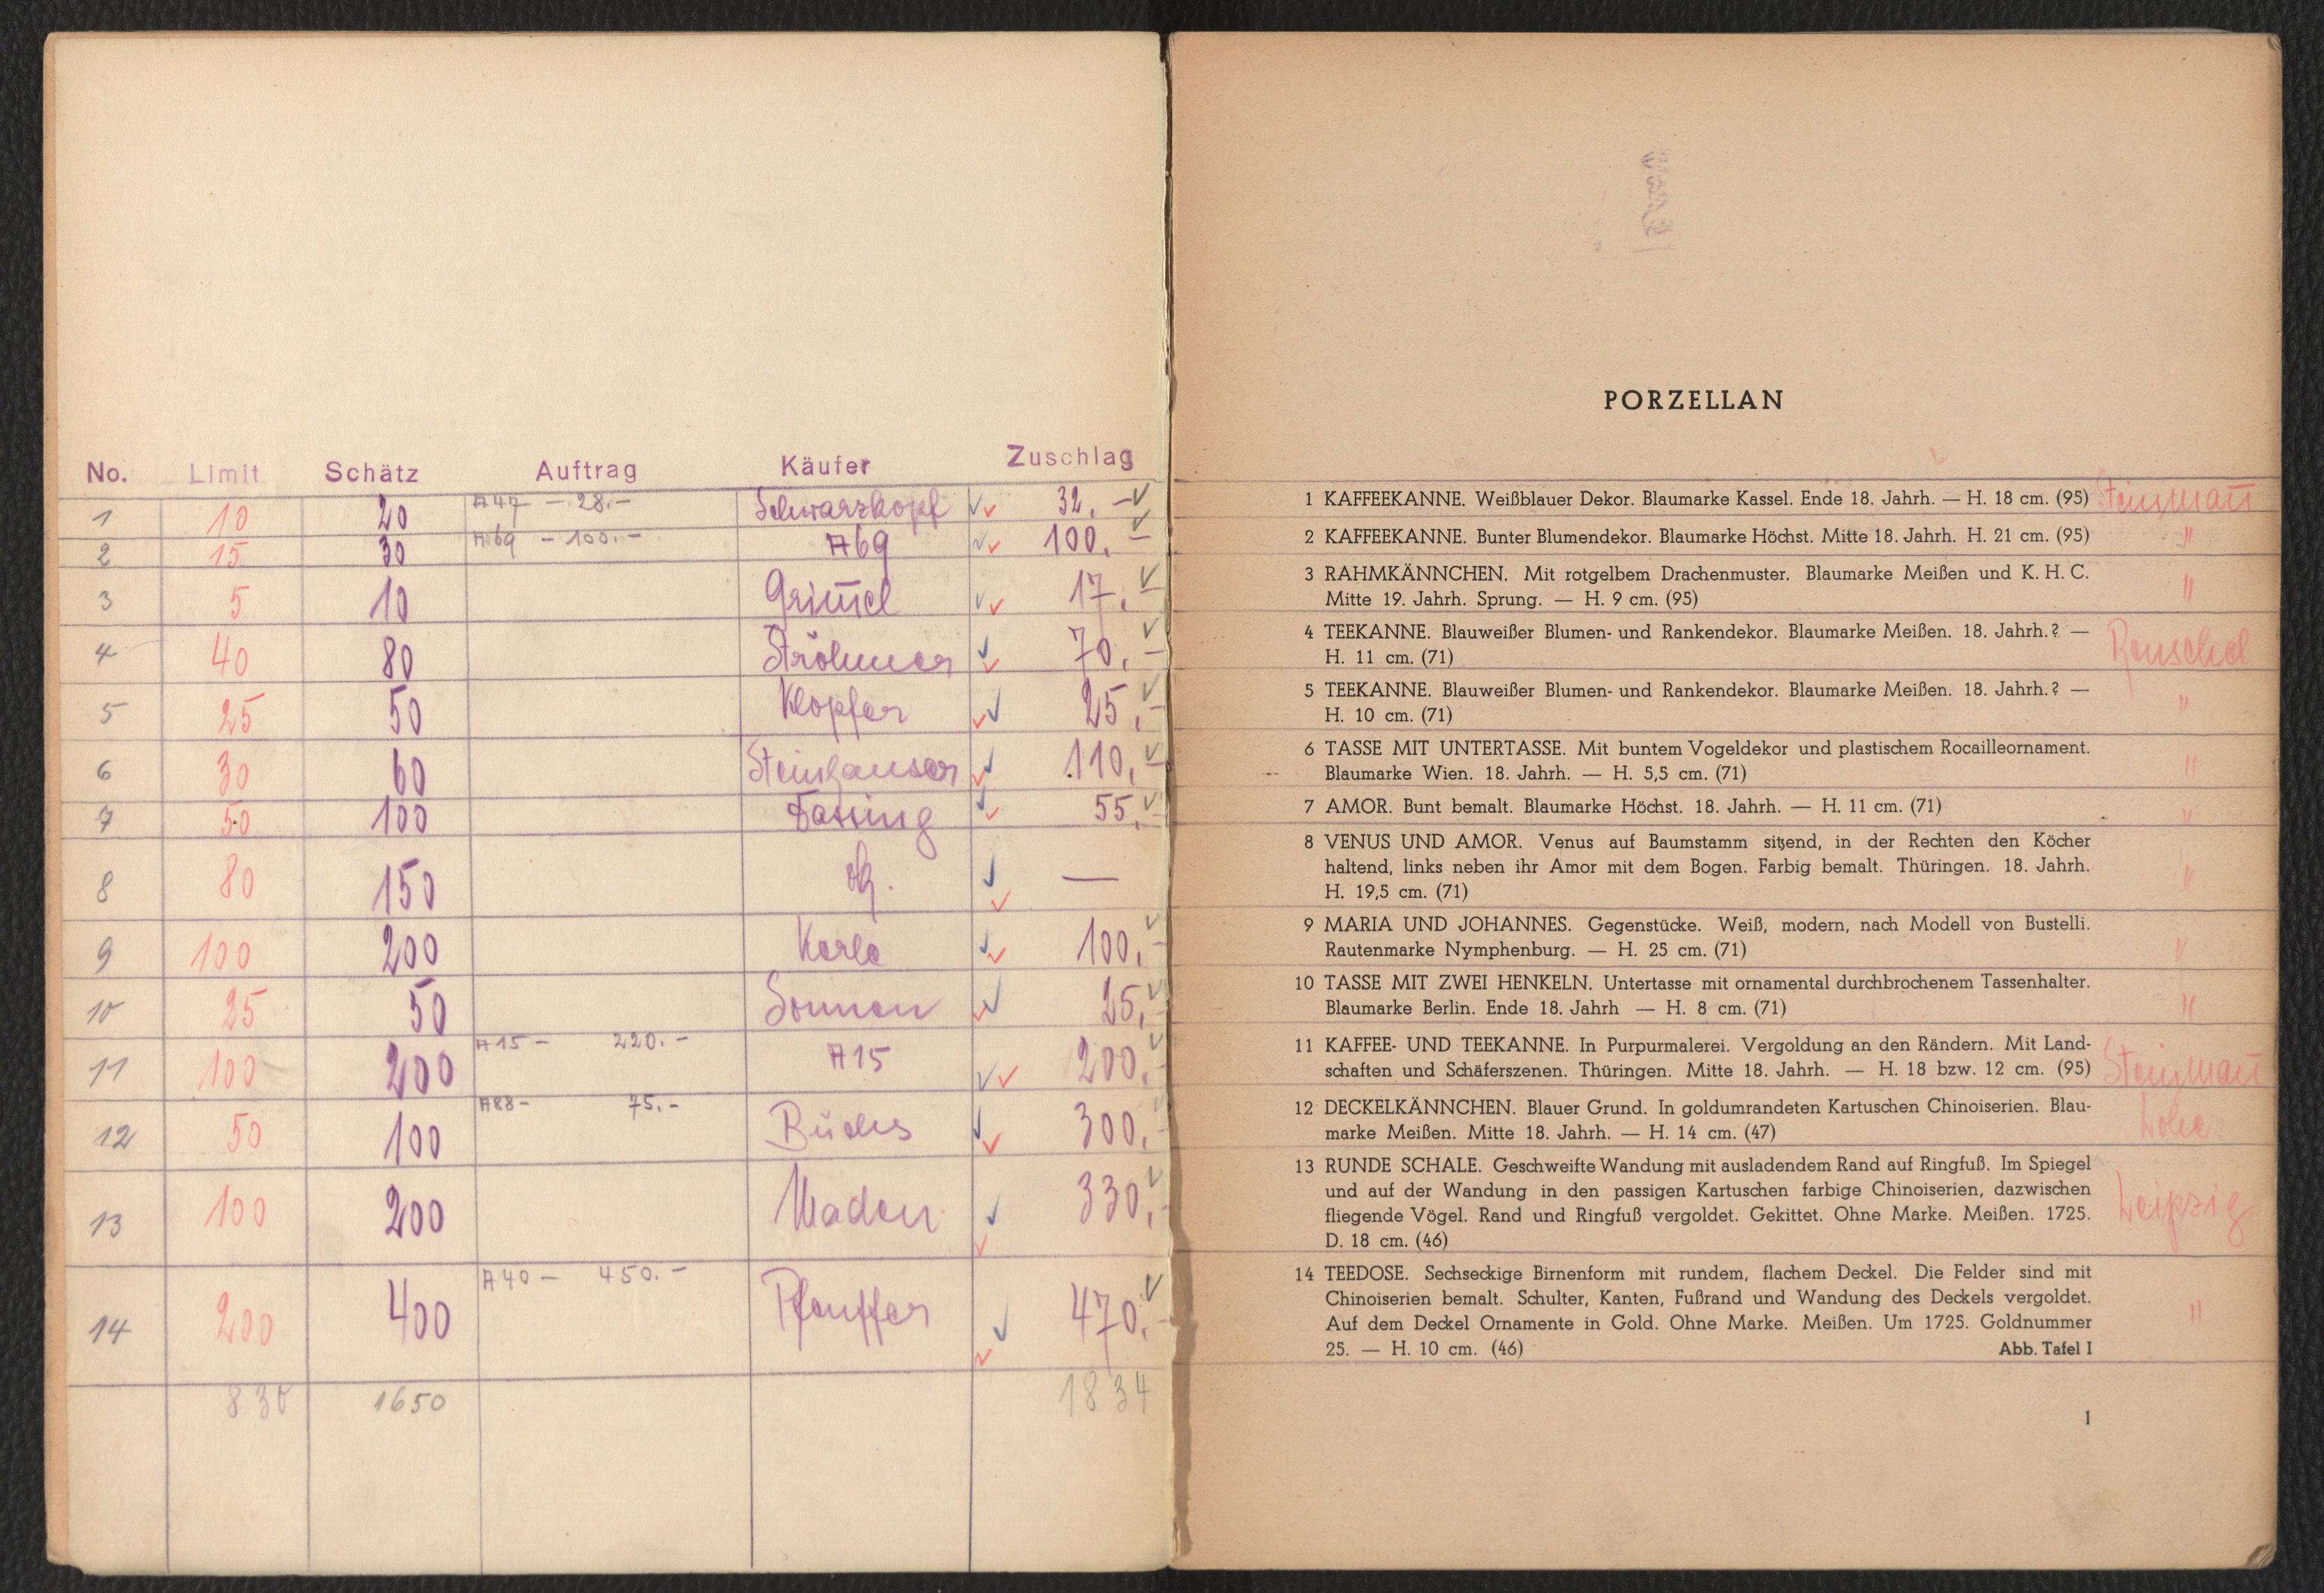 No. Limit Schätz Auftrag Käufer Zuschlag
1 10 20 A47 — 28.— Schwarzkopf 32.—
2 15 30 A69 — 100.— A69 100.—
3 5 10 Grim̄el 17.—
4 40 80 Ströhmer 70.—
5 25 50 Klopfer 25.—
6 30 60 Steinhauser 110.—
7 50 100 Fassing 55.—
8 80 150 —
9 100 200 Karlo 100.—
10 25 50 Sonnen 25.—
11 100 200 A15 — 220.— A15 200.—
12 50 100 A88 — 75.— Büches 300.—
13 100 200 Maden 330.—
14 200 400 A40 — 450.— Pfeuffer 470.—
830 1650 1834
PORZELLAN
1 KAFFEEKANNE. Weißblauer Dekor. Blaumarke Kassel. Ende 18. Jahrh. — H. 18 cm. (95)
2 KAFFEEKANNE. Bunter Blumendekor. Blaumarke Höchst. Mitte 18. Jahrh. H. 21 cm. (95) "
3 RAHMKÄNNCHEN. Mit rotgelbem Drachenmuster. Blaumarke Meißen und K. H. C.
Mitte 19. Jahrh. Sprung. — H. 9 cm. (95) "
4 TEEKANNE. Blauweißer Blumen- und Rankendekor. Blaumarke Meißen. 18. Jahrh.? —
H. 11 cm. (71)
5 TEEKANNE. Blauweißer Blumen- und Rankendekor. Blaumarke Meißen. 18. Jahrh.? —
H. 10 cm. (71) "
6 TASSE MIT UNTERTASSE. Mit buntem Vogeldekor und plastischem Rocailleornament.
Blaumarke Wien. 18. Jahrh. — H. 5,5 cm. (71) "
7 AMOR. Bunt bemalt. Blaumarke Höchst. 18. Jahrh. — H. 11 cm. (71) "
8 VENUS UND AMOR. Venus auf Baumstamm sitzend, in der Rechten den Köcher
haltend, links neben ihr Amor mit dem Bogen. Farbig bemalt. Thüringen. 18. Jahrh.
H. 19,5 cm. (71) "
9 MARIA UND JOHANNES. Gegenstücke. Weiß, modern, nach Modell von Bustelli.
Rautenmarke Nymphenburg. — H. 25 cm. (71) "
10 TASSE MIT ZWEI HENKELN. Untertasse mit ornamental durchbrochenem Tassenhalter.
Blaumarke Berlin. Ende 18. Jahrh — H. 8 cm. (71) "
11 KAFFEE- UND TEEKANNE. In Purpurmalerei. Vergoldung an den Rändern. Mit Land-
schaften und Schäferszenen. Thüringen. Mitte 18. Jahrh. — H. 18 bzw. 12 cm. (95)
12 DECKELKÄNNCHEN. Blauer Grund. In goldumrandeten Kartuschen Chinoiserien. Blau-
marke Meißen. Mitte 18. Jahrh. — H. 14 cm. (47)
13 RUNDE SCHALE. Geschweifte Wandung mit ausladendem Rand auf Ringfuß. Im Spiegel
und auf der Wandung in den passigen Kartuschen farbige Chinoiserien, dazwischen
fliegende Vögel. Rand und Ringfuß vergoldet. Gekittet. Ohne Marke. Meißen. 1725. Leipzig
D. 18 cm. (46)
14 TEEDOSE. Sechseckige Birnenform mit rundem, flachem Deckel. Die Felder sind mit
Chinoiserien bemalt. Schulter, Kanten, Fußrand und Wandung des Deckels vergoldet.
Auf dem Deckel Ornamente in Gold. Ohne Marke. Meißen. Um 1725. Goldnummer "
25. — H. 10 cm. (46) Abb. Tafel I
1